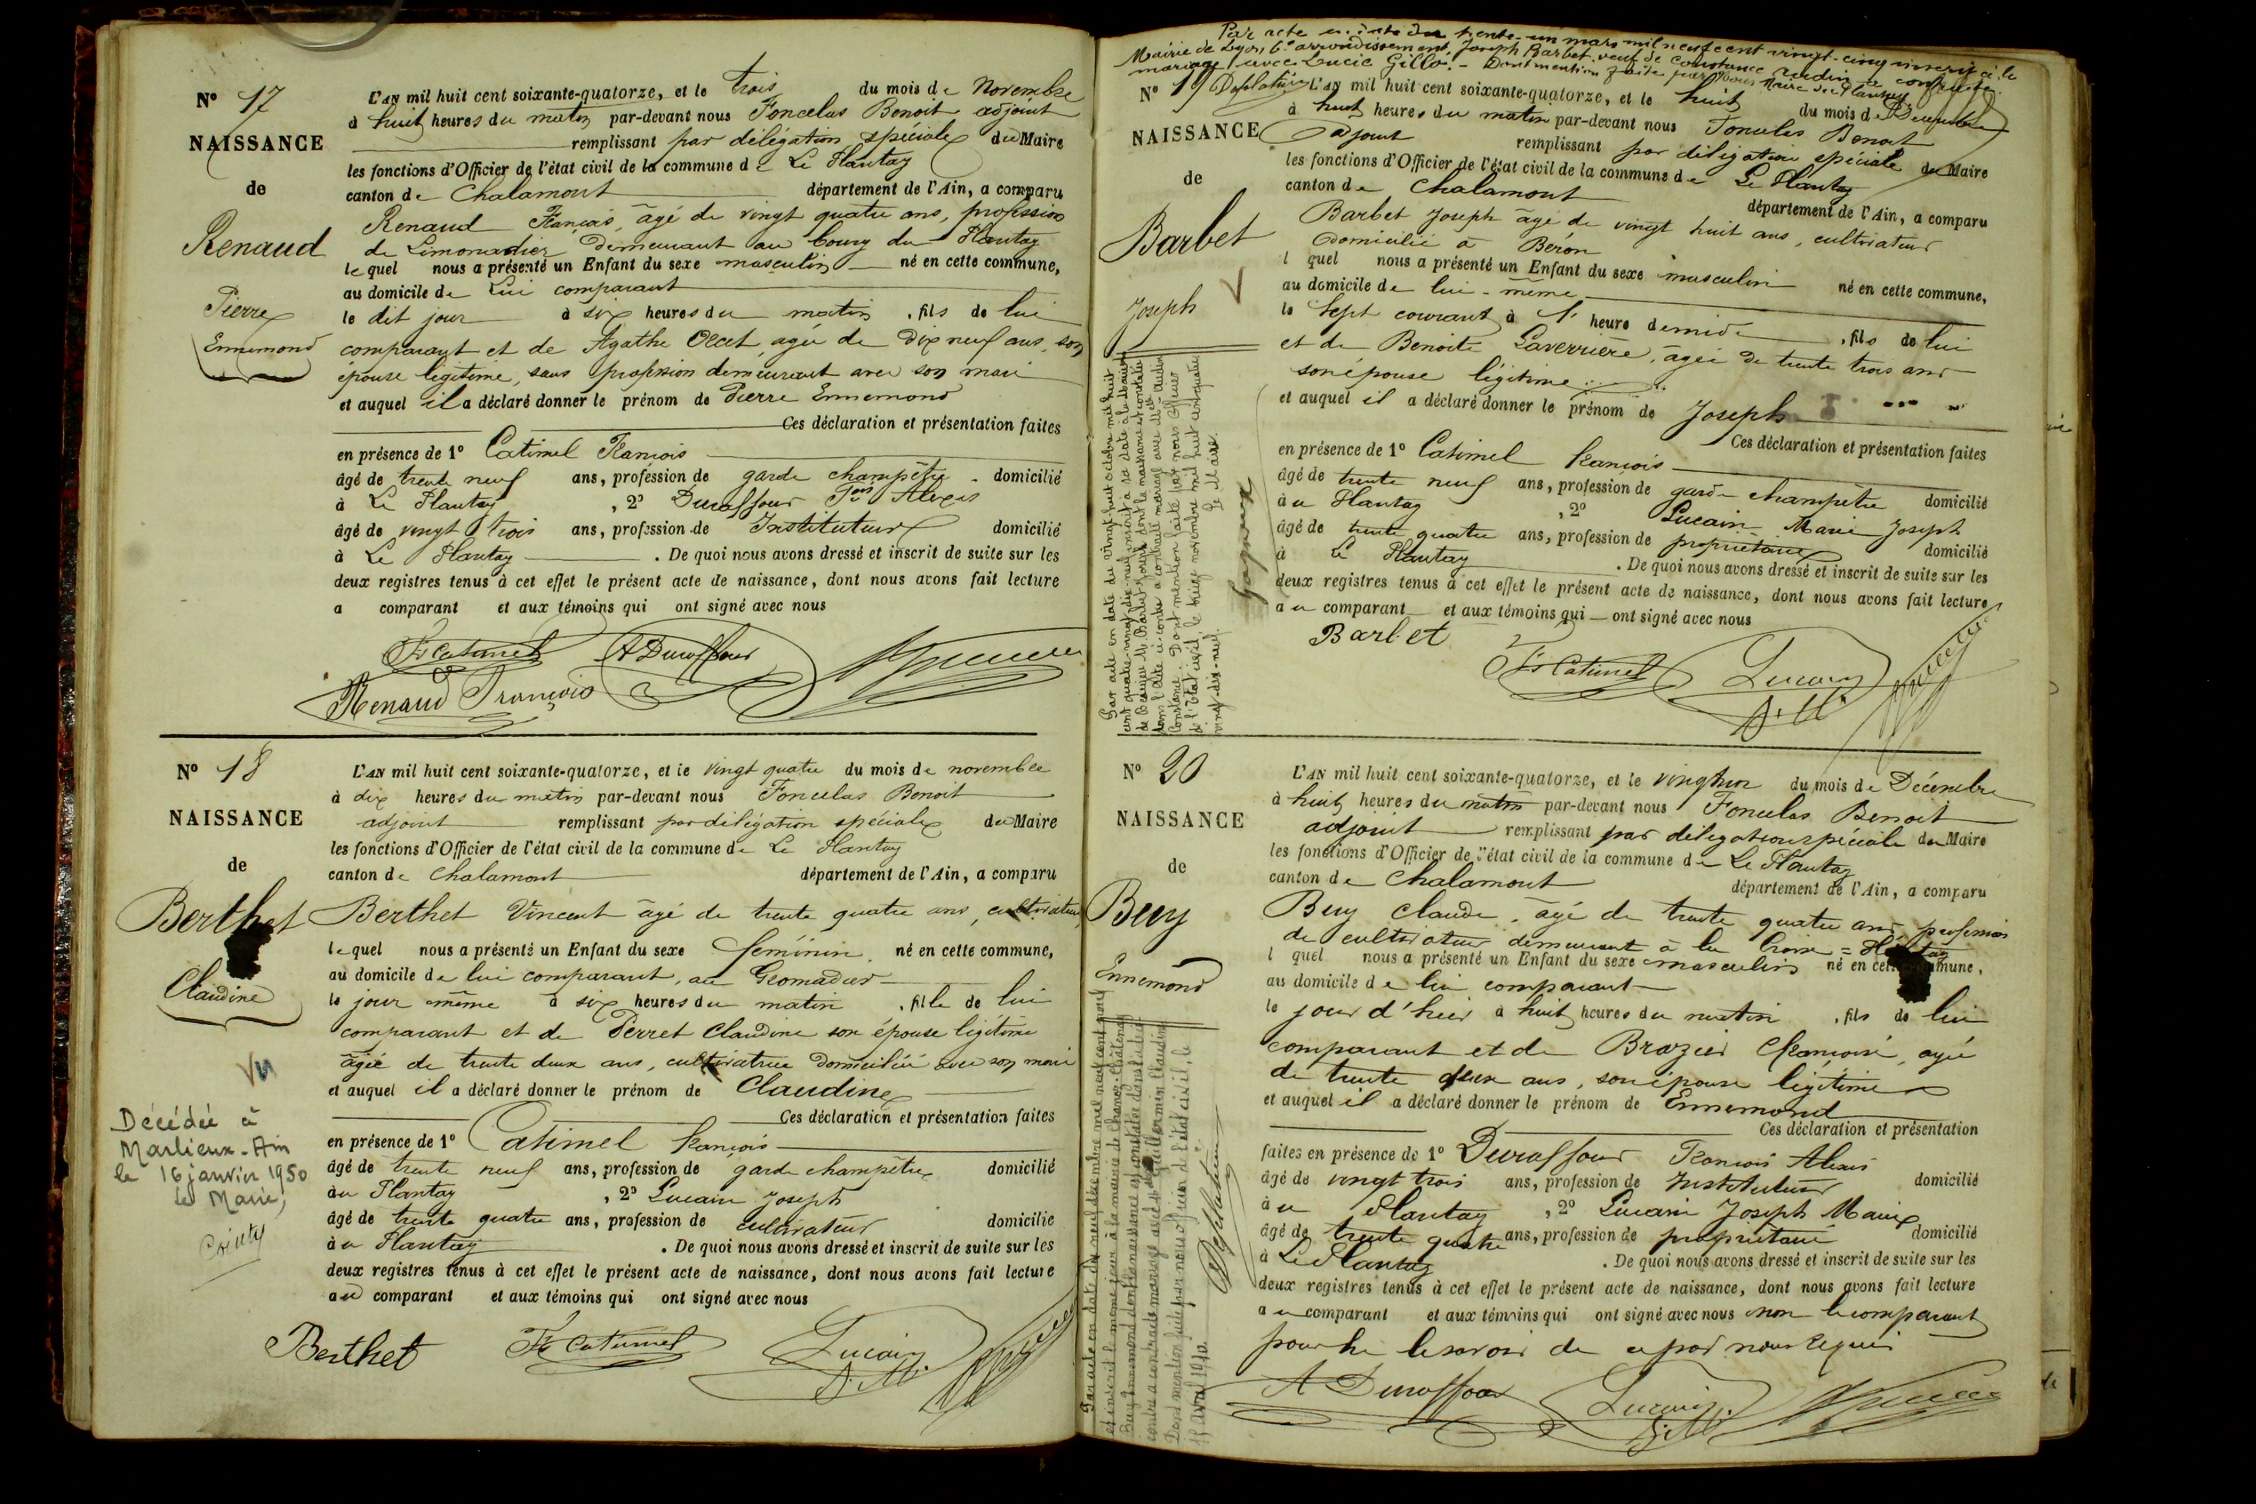 N° 17
NAISSANCE
de
Renaud
Pierre
Ennemond
L'AN mil huit cent soixante-quatorze, et le trois du mois de Novembre
à huit heures du matin par-devant nous Foncelas Benoit adjoint
remplissant par délégation spéciale du Maire
les fonctions d'Officier de l'état civil de la commune de Le Plantay
canton de Chalamont département de l'Ain, a comparu
Renaud François, âgé de vingt quatre ans, profession
de Limonadier demeurant au bourg du Plantay
lequel nous a présenté un Enfant du sexe masculin né en cette commune,
au domicile de Lui comparant
le dit jour à six heures du matin, fils de lui
comparant et de Agathe âgée de Dix neuf ans, son
épouse légitime, sans profession demeurant avec son mari
et auquel il a déclaré donner le prénom de Pierre Ennemond
Ces déclaration et présentation faites
en présence de 1° Catimel François
âgé de trente neuf ans, profession de garde champêtre domicilié
à Le Plantay, 2° Duraffour Fçois Alexis
âgé de vingt trois ans, profession de Instituteur domicilié
à Le Plantay. De quoi nous avons dressé et inscrit de suite sur les
deux registres tenus à cet effet le présent acte de naissance, dont nous avons fait lecture
a comparant et aux témoins qui ont signé avec nous
Fs Catimel A Duraffour
Renaud François
N° 18
NAISSANCE
de
Berthet
Claudine
Vu
Décédée à
Marlieux-Ain
le 16 janvier 1950
le Maire,
L'AN mil huit cent soixante-quatorze, et le vingt quatre du mois de novembre
à dix heures du matin par-devant nous Foncelas Benoit
adjoint remplissant par délégation spéciale du Maire
les fonctions d'Officier de l'état civil de la commune de Le Plantay
canton de Chalamont département de l'Ain, a comparu
Berthet Vincent âgé de trente quatre ans, cultivateur
lequel nous a présenté un Enfant du sexe féminin né en cette commune,
au domicile de lui comparant, au
le jour même à six heures du matin, fille de lui
comparant et de Perret Claudine son épouse légitime
âgée de trente deux ans, cultivatrice domiciliée avec son mari
et auquel il a déclaré donner le prénom de Claudine
Ces déclaration et présentation faites
en présence de 1° Catimel François
âgé de trente neuf ans, profession de garde champêtre domicilié
au Plantay, 2° Lucain Joseph
âgé de trente quatre ans, profession de cultivateur domicilié
au Plantay. De quoi nous avons dressé et inscrit de suite sur les
deux registres tenus à cet effet le présent acte de naissance, dont nous avons fait lecture
au comparant et aux témoins qui ont signé avec nous
Berthet Fs Catimel Lucain
J. M.
Par acte en date du trente-un mars mil neuf cent vingt-cinq inscrit à la
Mairie de Lyon 6e arrondissement, Joseph Barbet veuf de Constance Audin a contracté
mariage avec Lucie Gillot. - Dont mention faite par Nous Maire du Plantay
N° 19
NAISSANCE
de
Barbet
Joseph
Par acte en date du vingt huit octobre mil huit
cent quatre-vingt-dix-neuf inscrit à sa date à la Mairie
de M. Barbet Joseph dont la naissance est constatée
dans l'acte ci-contre a contracté mariage avec Dlle Audin
Constance. Dont mention faite par nous Officier
de l'Etat civil, le treize novembre mil huit cent quatre
vingt-dix-neuf. Le Maire.
L'AN mil huit cent soixante-quatorze, et le huit du mois de Décembre
à huit heures du matin par-devant nous Foncelas Benoit
adjoint remplissant par délégation spéciale du Maire
les fonctions d'Officier de l'état civil de la commune de Le Plantay
canton de Chalamont département de l'Ain, a comparu
Barbet Joseph âgé de vingt huit ans, cultivateur
domicilié à Béron
lquel nous a présenté un Enfant du sexe masculin né en cette commune,
au domicile de lui-même
le sept courant à 1 heure demie, fils de lui
et de Benoite Laverrière, âgée de trente trois ans
son épouse légitime
et auquel il a déclaré donner le prénom de Joseph
Ces déclaration et présentation faites
en présence de 1° Catimel François
âgé de trente neuf ans, profession de garde champêtre domicilié
au Plantay, 2° Lucain Marie Joseph
âgé de trente quatre ans, profession de propriétaire domicilié
à Le Plantay. De quoi nous avons dressé et inscrit de suite sur les
deux registres tenus à cet effet le présent acte de naissance, dont nous avons fait lecture
au comparant et aux témoins qui ont signé avec nous
Barbet Fs Catimel Lucain
J. M.
N° 20
NAISSANCE
de
Buy
Ennemond
Par acte en date du neuf décembre mil neuf cent neuf
et inscrit le même jour à la mairie de
Buy Ennemond dont la naissance est constatée dans l'acte ci-
contre a contracté mariage avec Guillermin Claudine
Dont mention faite par nous officier de l'état civil, le
avril 1910
L'AN mil huit cent soixante-quatorze, et le vingt un du mois de Décembre
à huit heures du matin par-devant nous Foncelas Benoit
adjoint remplissant par délégation spéciale du Maire
les fonctions d'Officier de l'état civil de la commune de Le Plantay
canton de Chalamont département de l'Ain, a comparu
Buy Claude, âgé de trente quatre ans profession
de cultivateur demeurant à la Plantay
lquel nous a présenté un Enfant du sexe masculin né en cette commune,
au domicile de lui comparant
le jour d'hier à huit heures du matin, fils de lui
comparant et de Brazier Françoise, âgée
de trente deux ans, son épouse légitime
et auquel il a déclaré donner le prénom de Ennemond
Ces déclaration et présentation
faites en présence de 1° Duraffour François Alexis
âgé de vingt trois ans, profession de Instituteur domicilié
au Plantay, 2° Lucain Joseph Marie
âgé de trente quatre ans, profession de propriétaire domicilié
à Le Plantay. De quoi nous avons dressé et inscrit de suite sur les
deux registres tenus à cet effet le présent acte de naissance, dont nous avons fait lecture
au comparant et aux témoins qui ont signé avec nous non le comparant
pour ne le savoir de ce par nous requis
A Duraffour Lucain
J. M.